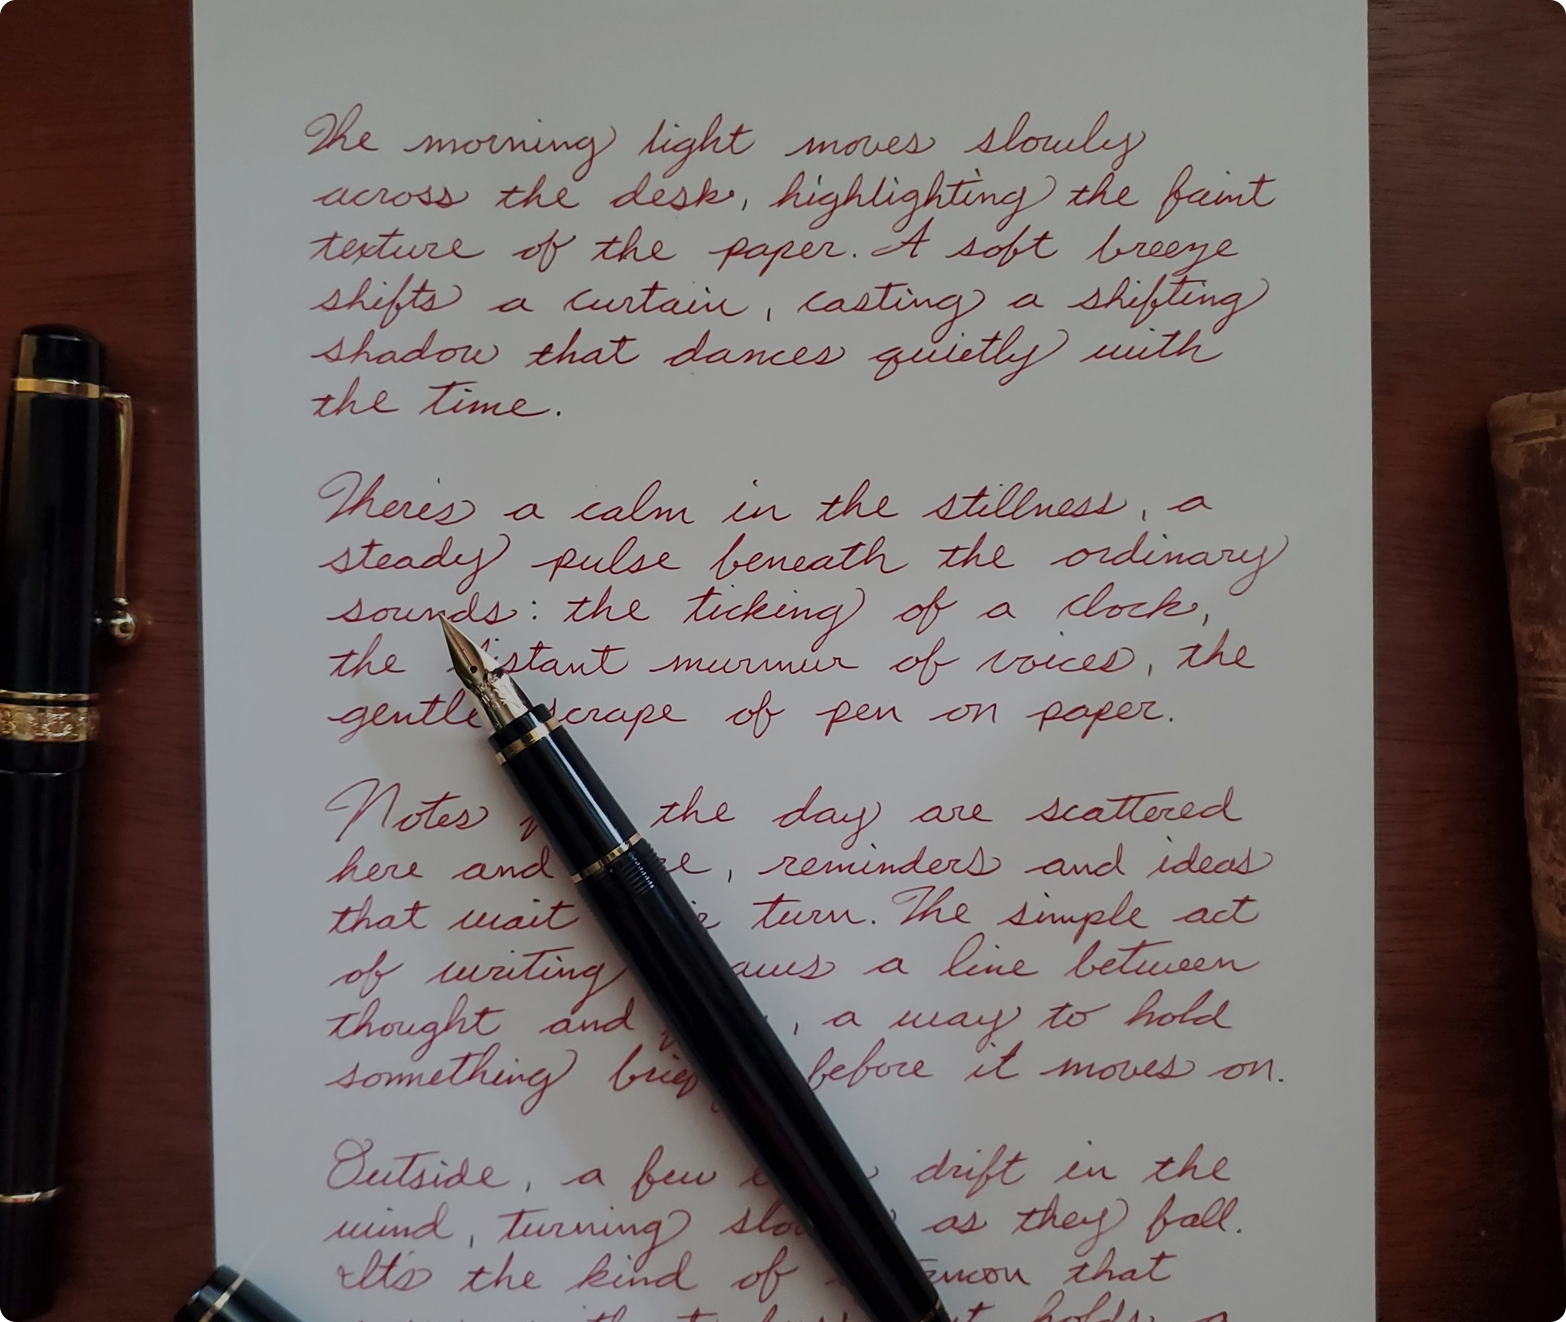 The morning light moves slowly
across the desk, highlighting the faint
texture of the paper. A soft breeze
shifts a curtain, casting a shifting
shadow that dances quietly with
the time.
There's a calm in the stillness, a
steady pulse beneath the ordinary
sounds: the ticking of a clock,
the distant murmur of voices, the
gentle scrape of pen on paper.
Notes the day are scattered
here and, reminders and ideas
that wait turn. The simple act
of writing a line between
thought and, a way to hold
something before it moves on.
Outside, a few drift in the
wind, turning as they fall.
It's the kind of that
holds a